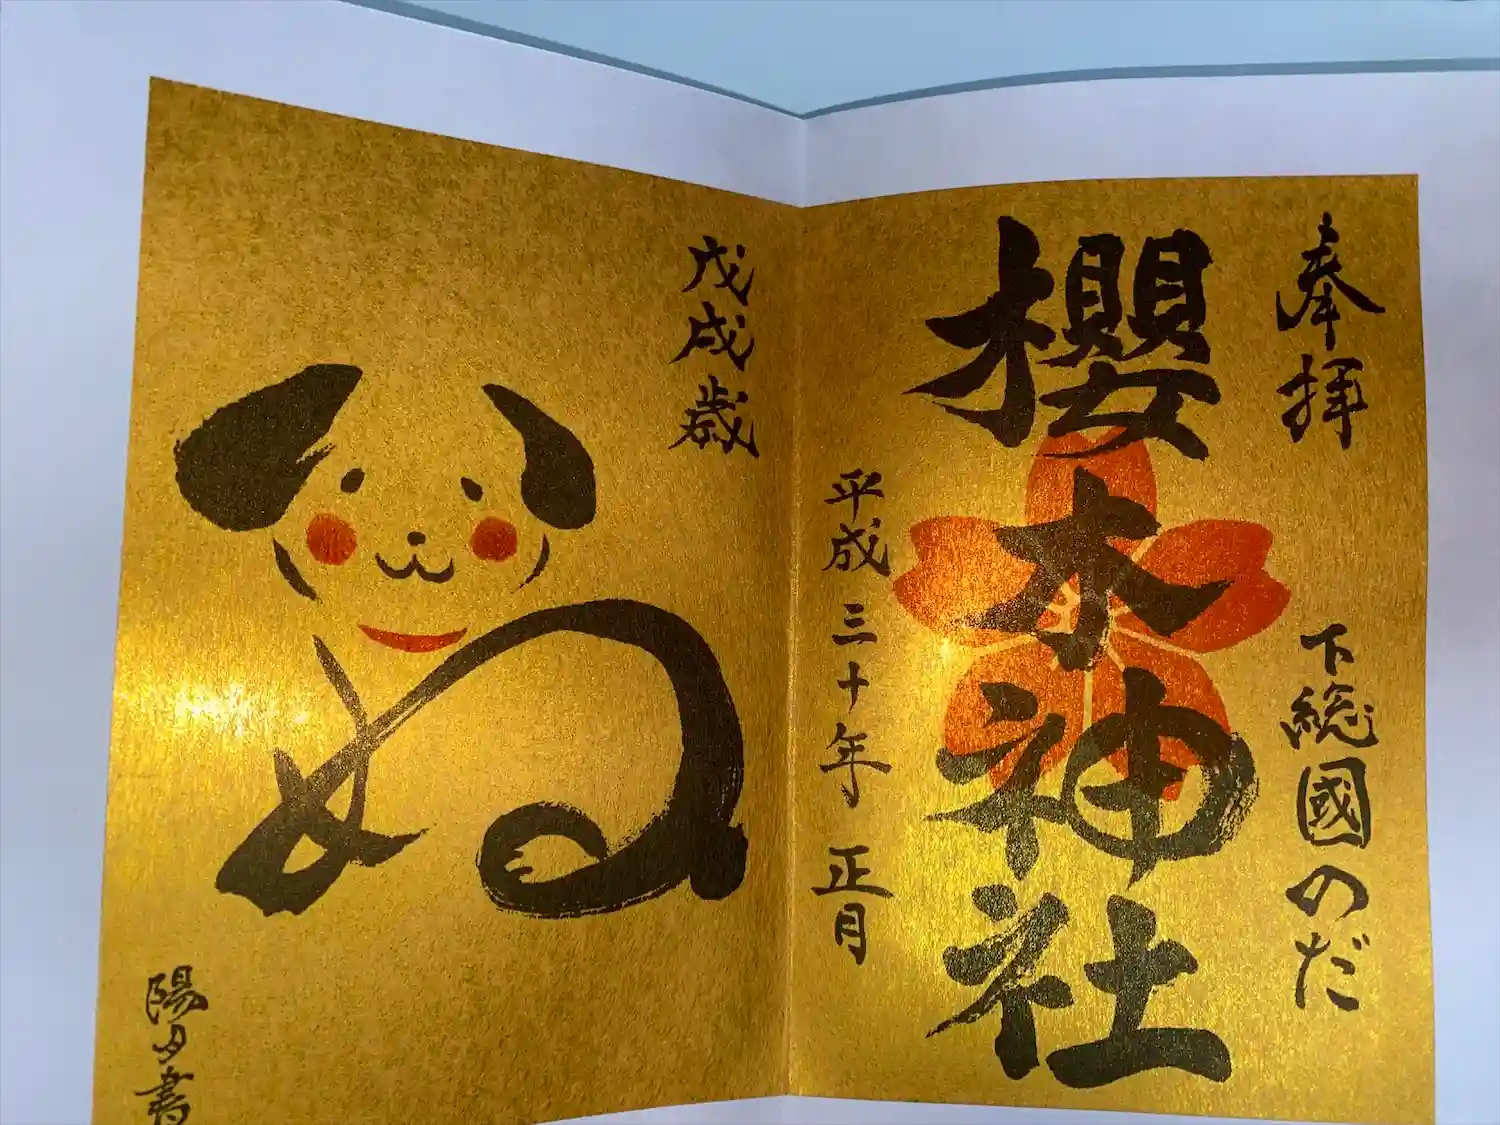 奉拝
下総國のだ
櫻木神社
平成三十年正月
戊戌歳
いぬ
陽夕書